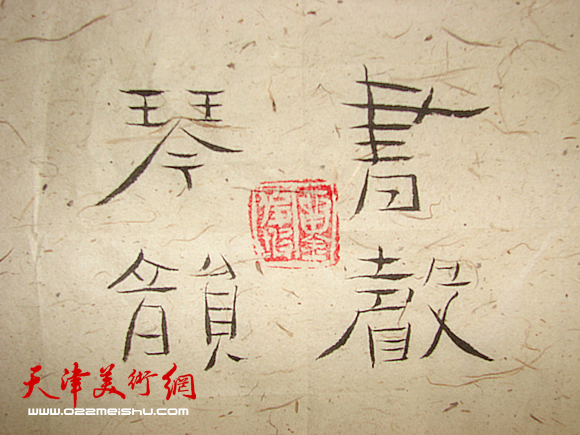 書聲
琴韻
天津美術網
www.022meishu.com